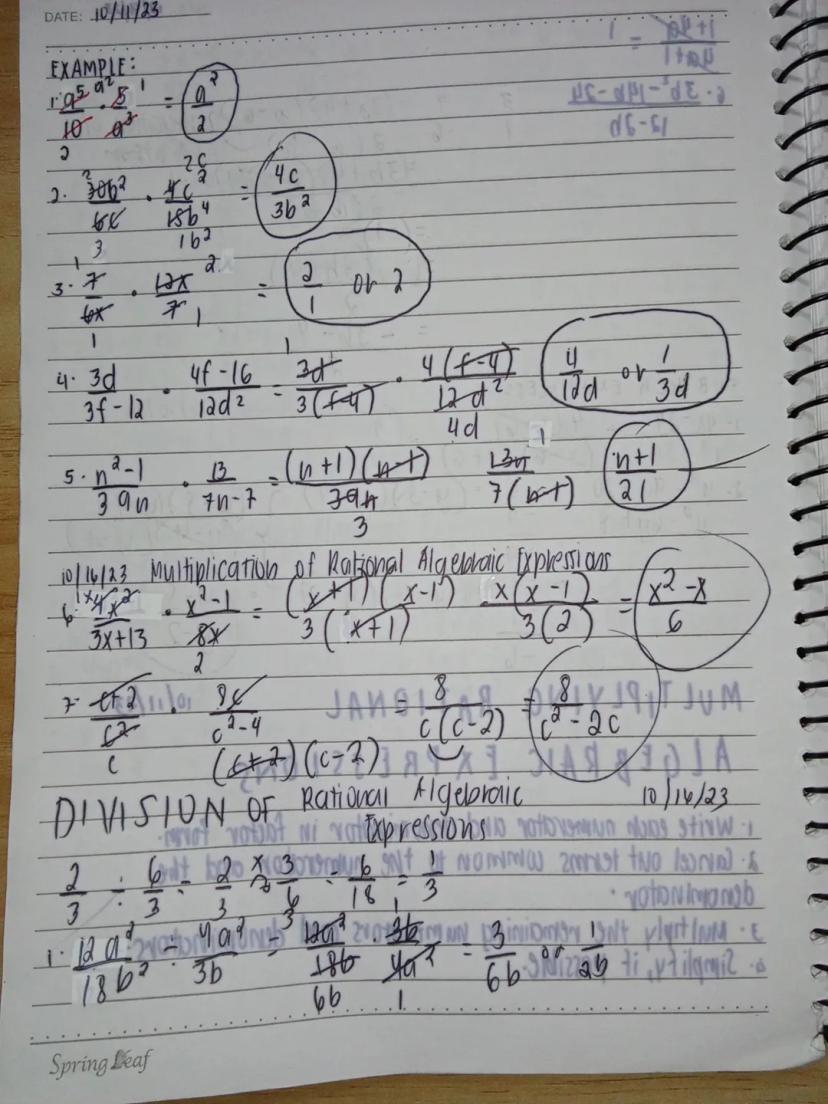 DATE: 10/11/23
EXAMPLE:
1. a⁵/10 · 5/a³ = a²/2
2. 30b²/6c · 4c²/18b⁴ = 4c/3b²
3. 7/6x · 12x/7 = 2/1 or 2
4. 3d/3f-12 · 4f-16/12d² = 3d/3(f-4) · 4(f-4)/12d² 4/12d or 1/3d
4d
5. n²-1/39n · 13/7n-7 = (n+1)(n-1)/39n 13n/7(n-1) n+1/21
3
10/16/23 Multiplication of Rational Algebraic Expressions
6. 4x²/3x+13 · x²-1/8x = (x+1)(x-1)/3(x+1) x(x-1)/3(2) = x²-x/6
2
7. c+2/c² · 8c/c²-4 = 8/c(c-2) = 8/c²-2c
c (c+2)(c-2)
DIVISION OF Rational Algebraic 10/16/23
Expressions
2/3 ÷ 6/3 = 2/3 x 3/6 = 6/18 = 1/3
1. 12a²/18b² ÷ 4a²/3b = 12a²/18b · 3b/4a² = 3/6b or 1/2b
6b 1
Spring Leaf